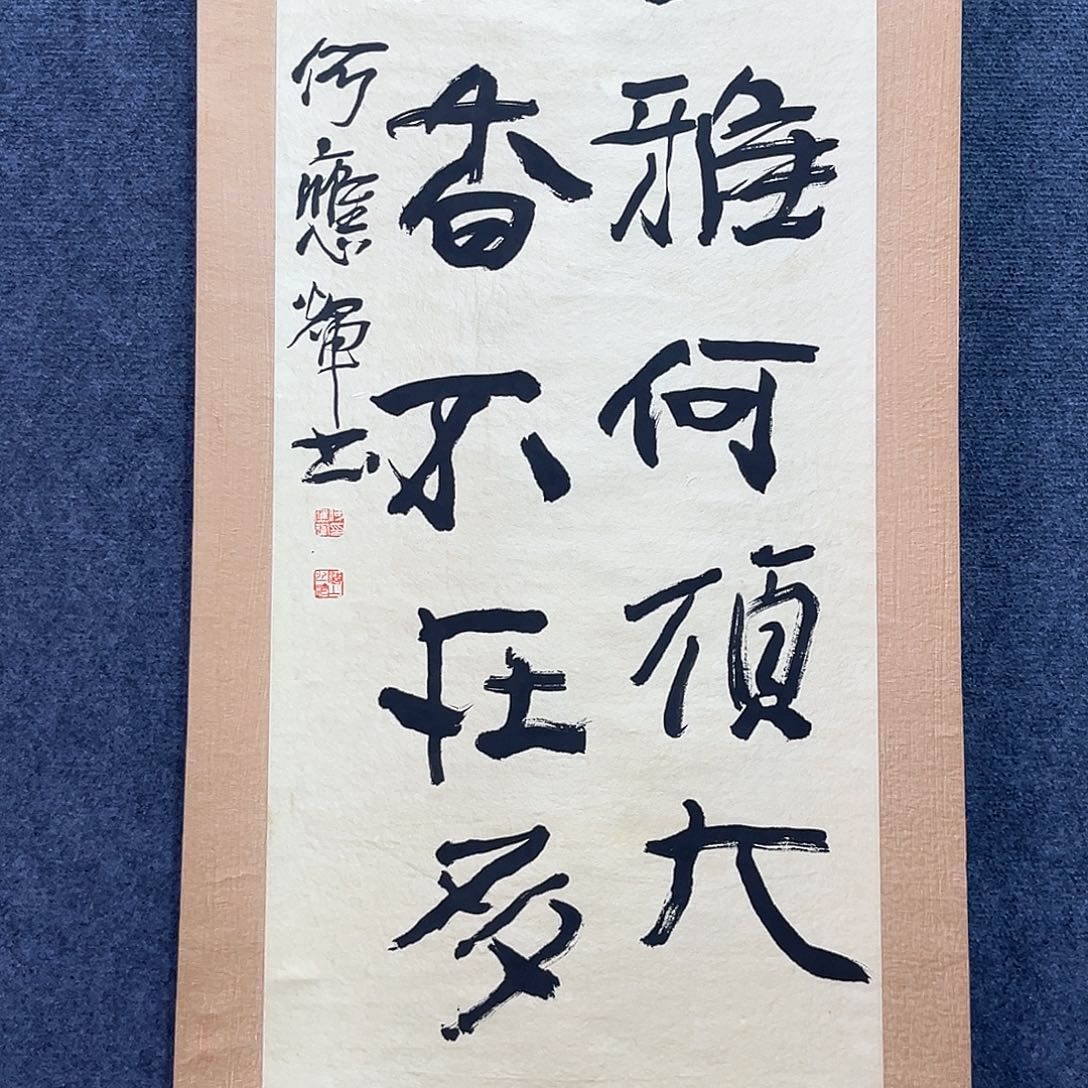 雅何須大
香不在多
何應輝书